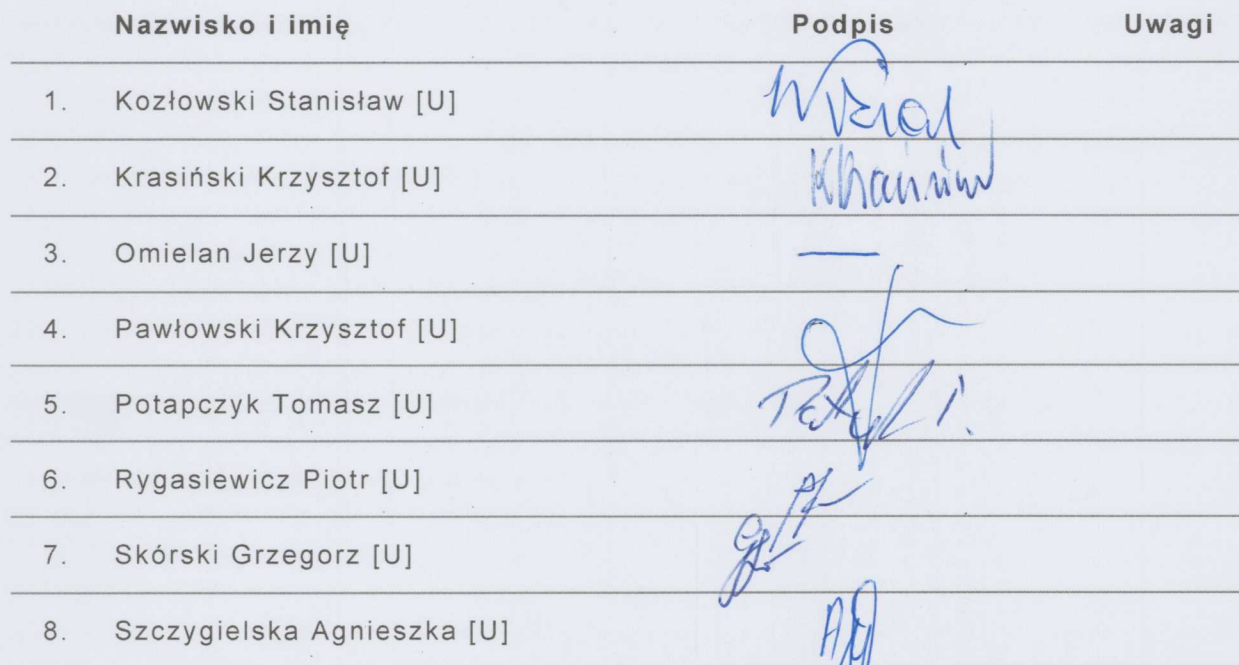 Nazwisko i imię Podpis Uwagi
1. Kozłowski Stanisław [U]
2. Krasiński Krzysztof [U]
3. Omielan Jerzy [U] —
4. Pawłowski Krzysztof [U]
5. Potapczyk Tomasz [U]
6. Rygasiewicz Piotr [U]
7. Skórski Grzegorz [U]
8. Szczygielska Agnieszka [U]